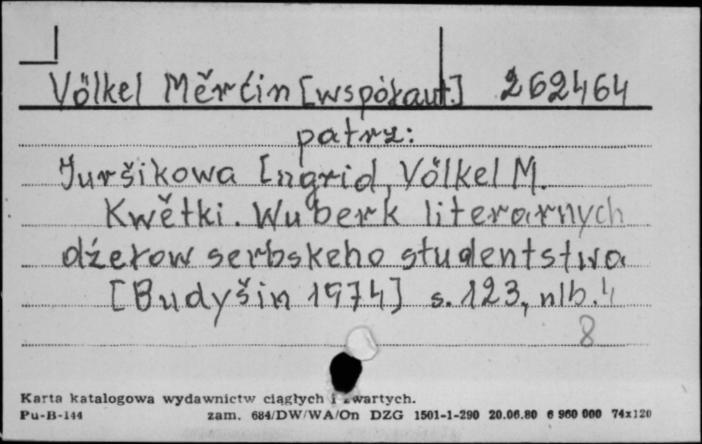 Völkel Měrćin [współaut.] 262464
patrz:
Juršikowa Ingrid, Völkel M.
Kwětki. Wuběrk literarnych
dźěłow serbskeho studentstwa
[Budyšin 1974] s. 123, nlb. 4
8
Karta katalogowa wydawnictw ciągłych i zwartych.
Pu-B-144 zam. 684/DW/WA/On DZG 1501-1-290 20.06.80 6 960 000 74x120